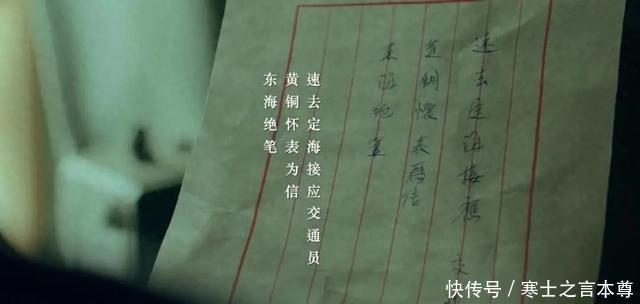 速去定海接應交
黄銅懷表爲信
东海绝笔
速去定海接应交通员
黄铜怀表为信
东海绝笔
快传号／寒士之言本尊